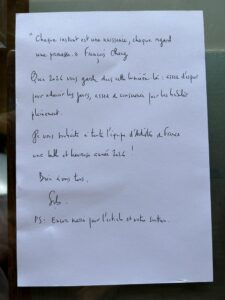 " Chaque instant est une naissance, chaque regard
une promesse. » François Cheng
Que 2024 vous garde dans cette lumière-là : assez d'espoir
pour adoucir les jours, assez de conscience pour les habiter
pleinement.
Je vous souhaite à toute l'équipe d'Artistes de France
une belle et heureuse année 2024 !
Bien à vous tous.
PS : Encore merci pour l'article et votre soutien.